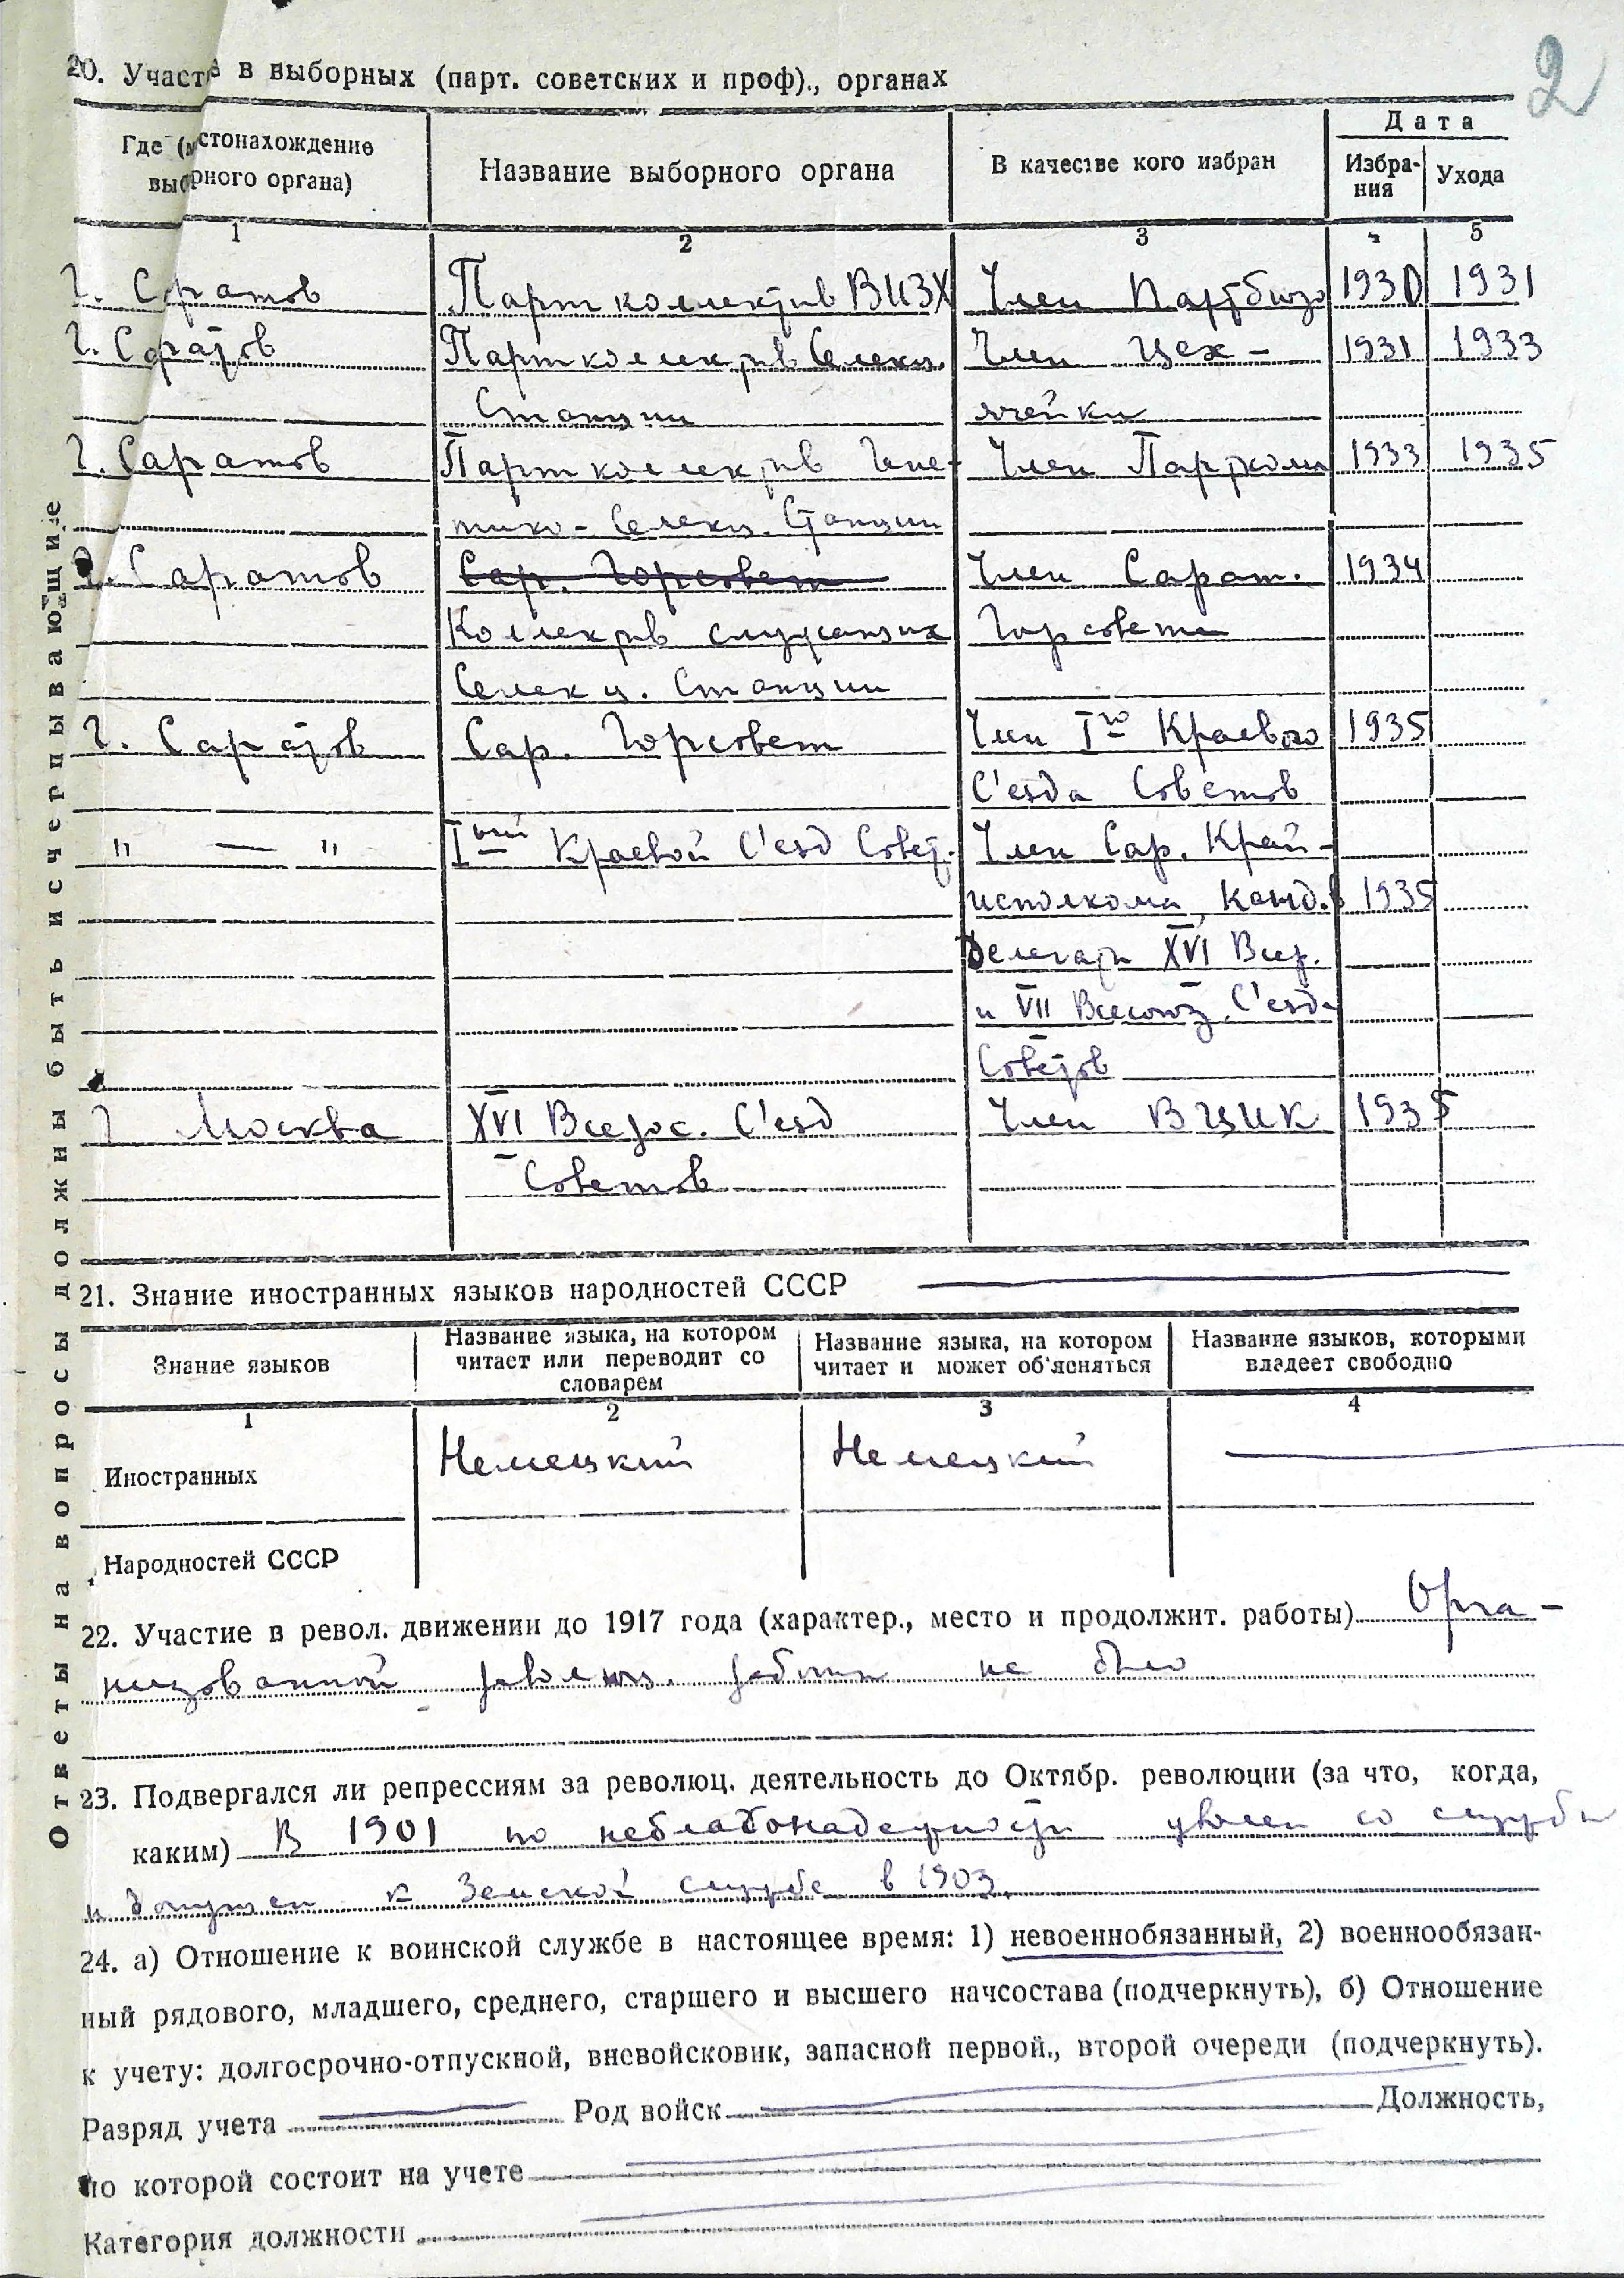 2
20. Участ в выборных (парт. советских и проф)., органах
Где (стонахождение выбрного органа)
Название выборного органа
В качестве кого избран
Дата
Избрания
Ухода
1 2 3 4 5
Г. Саратов Партколлектив ВИЗХ Член Партбюро 1930 1931
Г. Саратов Партколлектив Селекц. Член Цех- 1931 1933
Станции ячейки
Г. Саратов Партколлектив Гене- Член Парткома 1933 1935
тико-Селекц. Станции
Г. Саратов Сар. Горсовет Член Сарат. 1934
Коллектив служащих Горсовета
Селекц. Станции
Г. Саратов Сар. Горсовет Член Iго Краевого 1935
С'езда Советов
" — " Iый Краевой С'езд Совет. Член Сар. Край-
исполкома, Канд. 1935
Делегат XVI Всер.
и VII Всесоюз. С'езда
Советов
г Москва XVI Всерос. С'езд Член ВЦИК 1935
Советов
21. Знание иностранных языков народностей СССР
Знание языков
Название языка, на котором читает или переводит со словарем
Название языка, на котором читает и может об'ясняться
Название языков, которыми владеет свободно
1 2 3 4
Иностранных Немецкий Немецкий
Народностей СССР
22. Участие в револ. движении до 1917 года (характер., место и продолжит. работы) Орга-
низованной революц. работы не было
23. Подвергался ли репрессиям за революц. деятельность до Октябр. революции (за что, когда,
каким) В 1901 по неблагонадежности уволен со службы
и допущен к Земской службе в 1903.
24. а) Отношение к воинской службе в настоящее время: 1) невоеннобязанный, 2) военнообязан-
ный рядового, младшего, среднего, старшего и высшего начсостава (подчеркнуть), б) Отношение
к учету: долгосрочно-отпускной, вневойсковик, запасной первой., второй очереди (подчеркнуть).
Разряд учета Род войск Должность,
по которой состоит на учете
Категория должности
Ответы на вопросы должны быть исчерпывающие